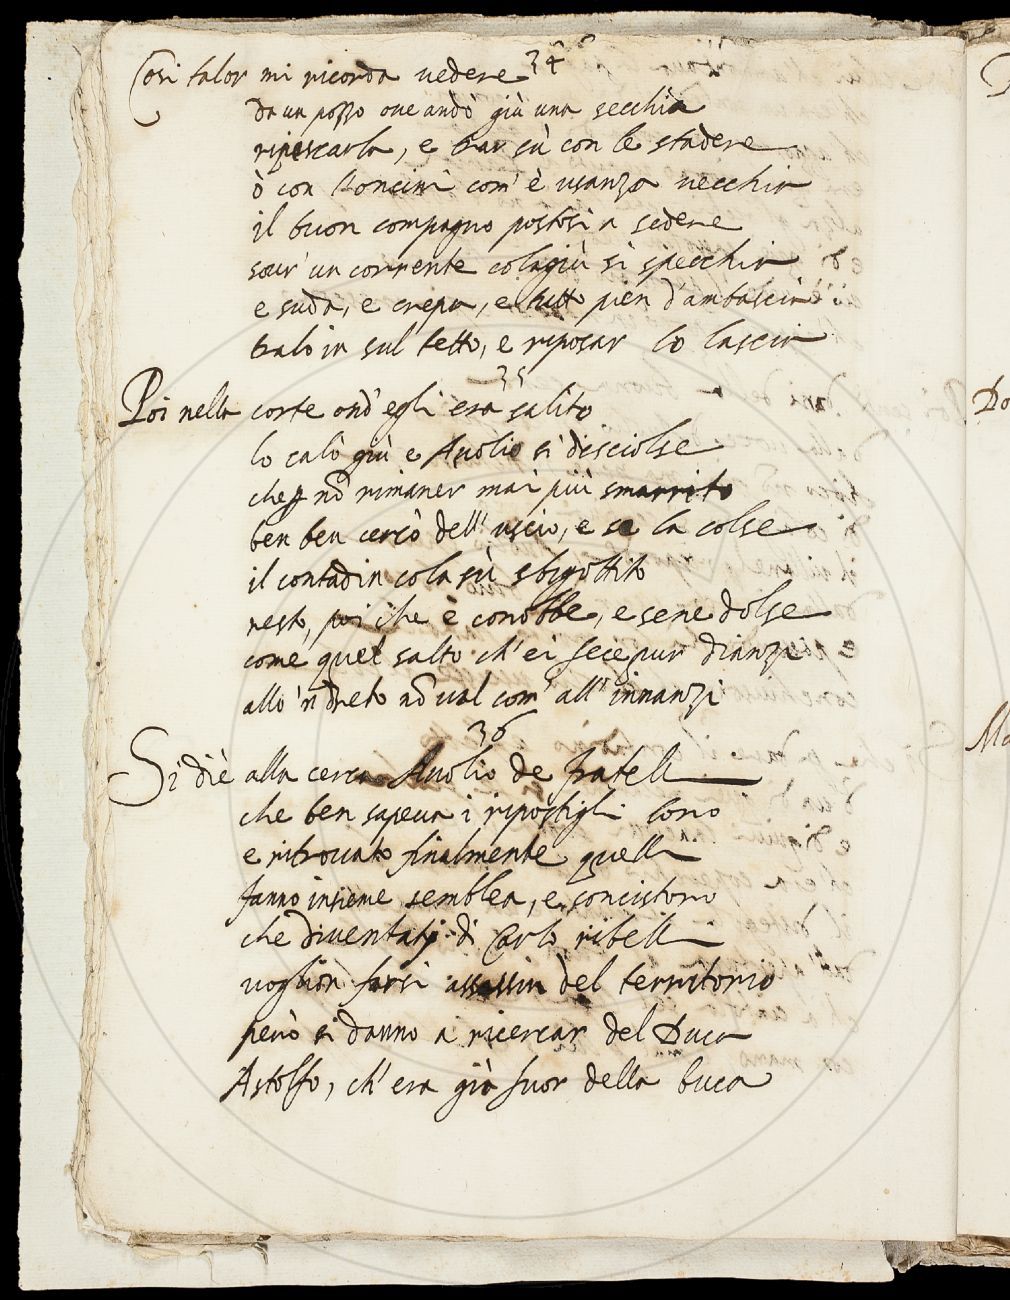 34
Così talor mi ricorda vedere
da un pozzo ove andò giù una secchia
ripescarla, e trar sù con le stadere
ò con Roncini com' è usanza vecchia
il buon compagno postosi a sedere
sour' un corrente colagiù si specchia
e suda, e crepa, e tutto pien d'ambascia
tralo in sul tetto, e riposar lo lascia
35
Poi nella corte ond' egli era salito
lo calò giù e Avolio si disciolse
che p nō rimaner mai più smarrito
ben ben cercò dell' uscio, e se la colse
il contadin cola sù sbigottito
resto, poi che è conobbe, e sene dolse
come quel salto ch' ei fece pur dianzi
allo 'ndreto nō val com' all' innanzi
36
Si diè alla cerca Avolio de fratelli
che ben sapeva i ripostigli loro
e ritrovato finalmente quelli
fanno insieme semblea, e concistoro
che diventati di Carlo ribelli
voglion farsi assassin del territorio
però si danno a ricercar del Duca
Astolfo, ch' era già fuor della buca